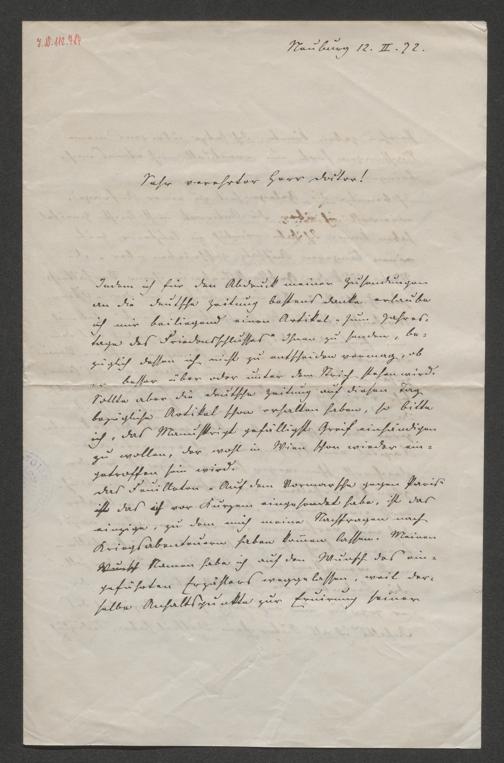 I.N. 112.984
Neuburg 12. II. 72.
Sehr verehrter Herr Doctor!
Indem ich für den Abdruck meiner Zusendungen
an die deutsche Zeitung bestens danke erlaube
ich mir beiliegend einen Artikel „Zum Jahres-
tage des Friedensschlusses“ Ihnen zu senden, be-
züglich dessen ich nicht zu entscheiden vermag, ob
er besser über oder unter dem Strich stehen wird.
Sollte aber die deutsche Zeitung auf diesen Tag
bezügliche Artikel schon erhalten haben, so bitte
ich, das Manuskript gefälligst Greif einhändigen
zu wollen, der wohl in Wien schon wieder ein-
getroffen sein wird.
Das Feuilleton „Auf dem Vormarsche gegen Paris
ist das ich vor Kurzem eingesendet habe, ist das
einzige, zu dem mich meine Nachfragen nach
Kriegsabenteuern haben kommen lassen. Meinen
Wunsch Namen habe ich auf den Wunsch des ein-
geführten Erzählers weggelassen, weil der-
selbe Anhaltspunkte zur Eruirung seiner